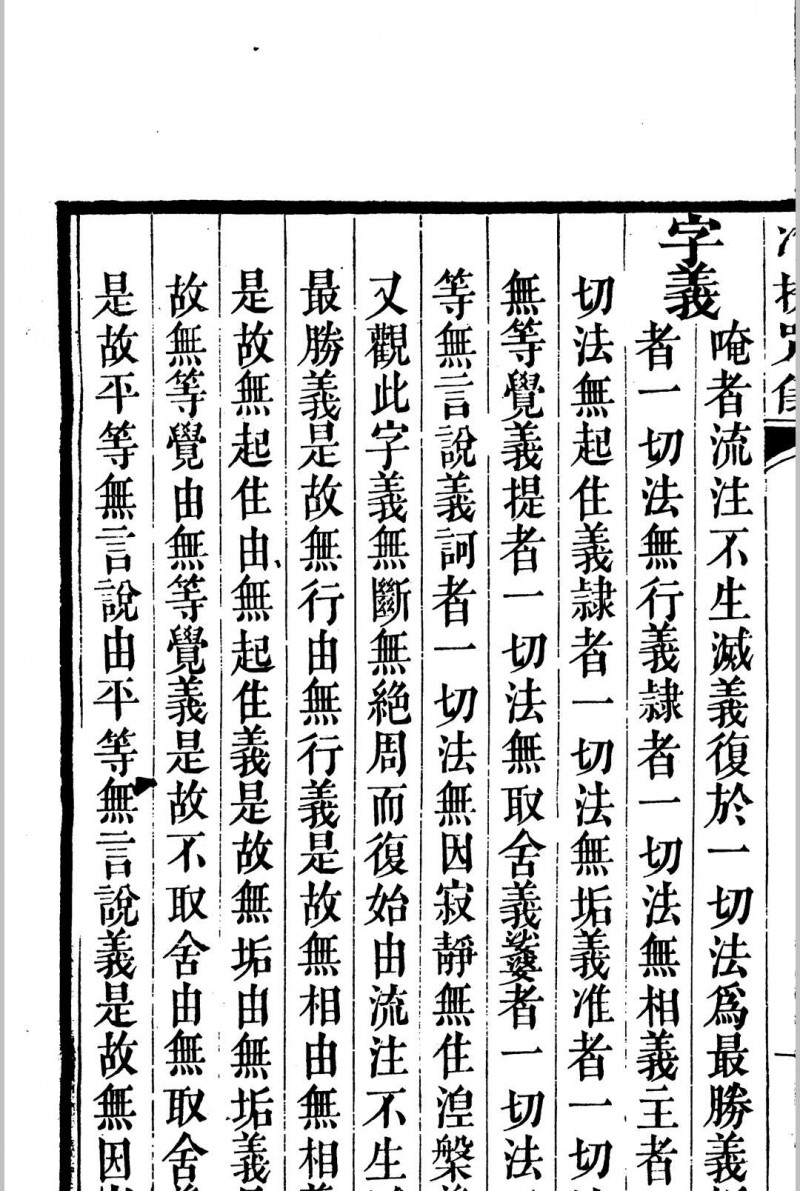 字義
唵者流注不生滅義復於一切法爲最勝義
者一切法無行義隷者一切法無相義主者
切法無起住義隷者一切法無垢義准者一切
無等覺義提者一切法無取舍義娑婆者一切法
等無言說義訶者一切法無因寂靜無住湼槃
又觀此字義無斷無絕周而復始由流注不生
最勝義是故無行由無行義是故無相由無相義
是故無起住由無起住義是故無垢由無垢義
故無等覺由無等覺義是故不取舍由無取舍
是故平等無言說由平等無言說義是故無因